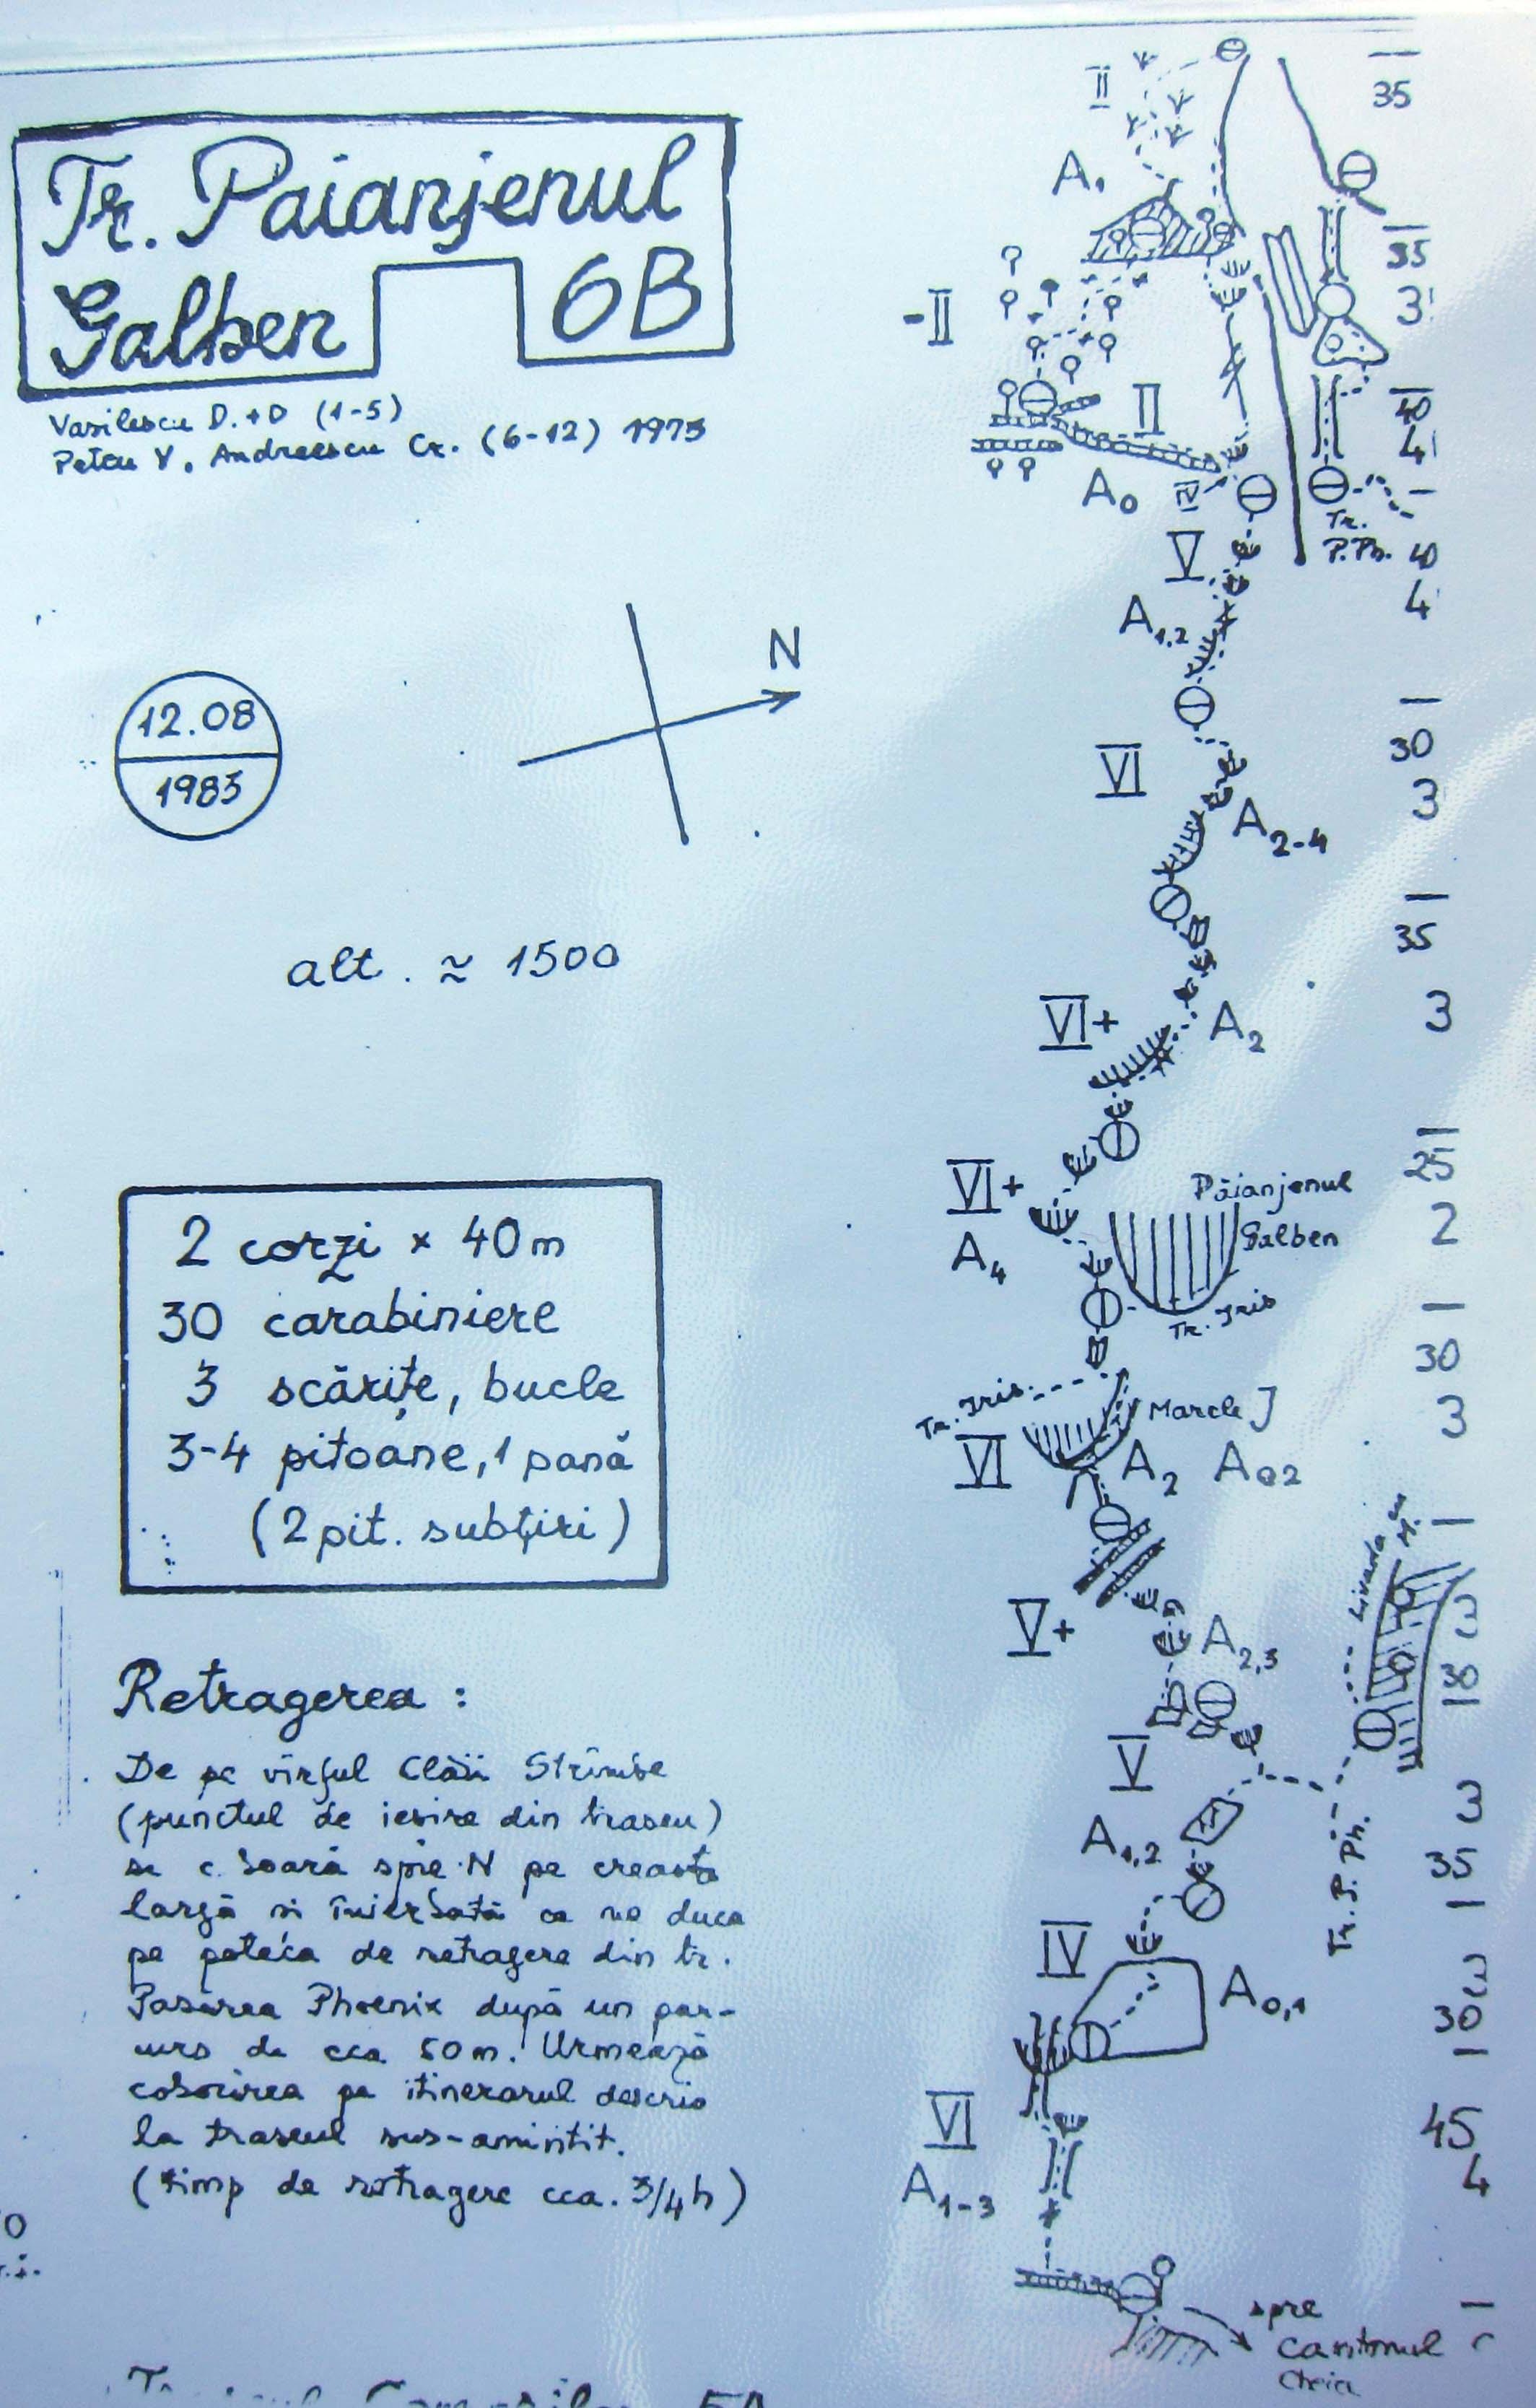 Tr. Paianjenul
Galben 6B
Vasilescu D.+D (1-5)
Petcu V. Andreescu Cr. (6-12) 1975
12.08
1983
N
alt. ≈ 1500
2 corzi × 40m
30 carabiniere
3 scărițe, bucle
3-4 pitoane, 1 pană
(2 pit. subțiri)
Retragerea :
De pe vîrful Clăii Strîmbe
(punctul de iesire din traseu)
se coboară spre N pe creasta
largă si înierbată ce ne duce
pe poteca de retragere din tr.
Pasărea Phoenix după un par-
curs de cca 50m. Urmează
coborirea pe itinerarul descris
la traseul sus-amintit.
(timp de retragere cca. 3/4h)
II
35
A1
35
3
-II
II
40
4
A0
IV
Tr.
P.Ph.
V
40
4
A1,2
30
VI
3
A2-4
35
VI+
A2
3
25
VI+
Păianjenul
Galben
2
A4
Tr. Iris
30
Tr. Iris
Marele J
3
VI
A2
A02
Livada cu
V+
A2,3
3
30
V
A1,2
3
35
Tr. P. Ph.
IV
A0,1
3
30
VI
45
A1-3
4
spre
Cantonul
Cheia
5A